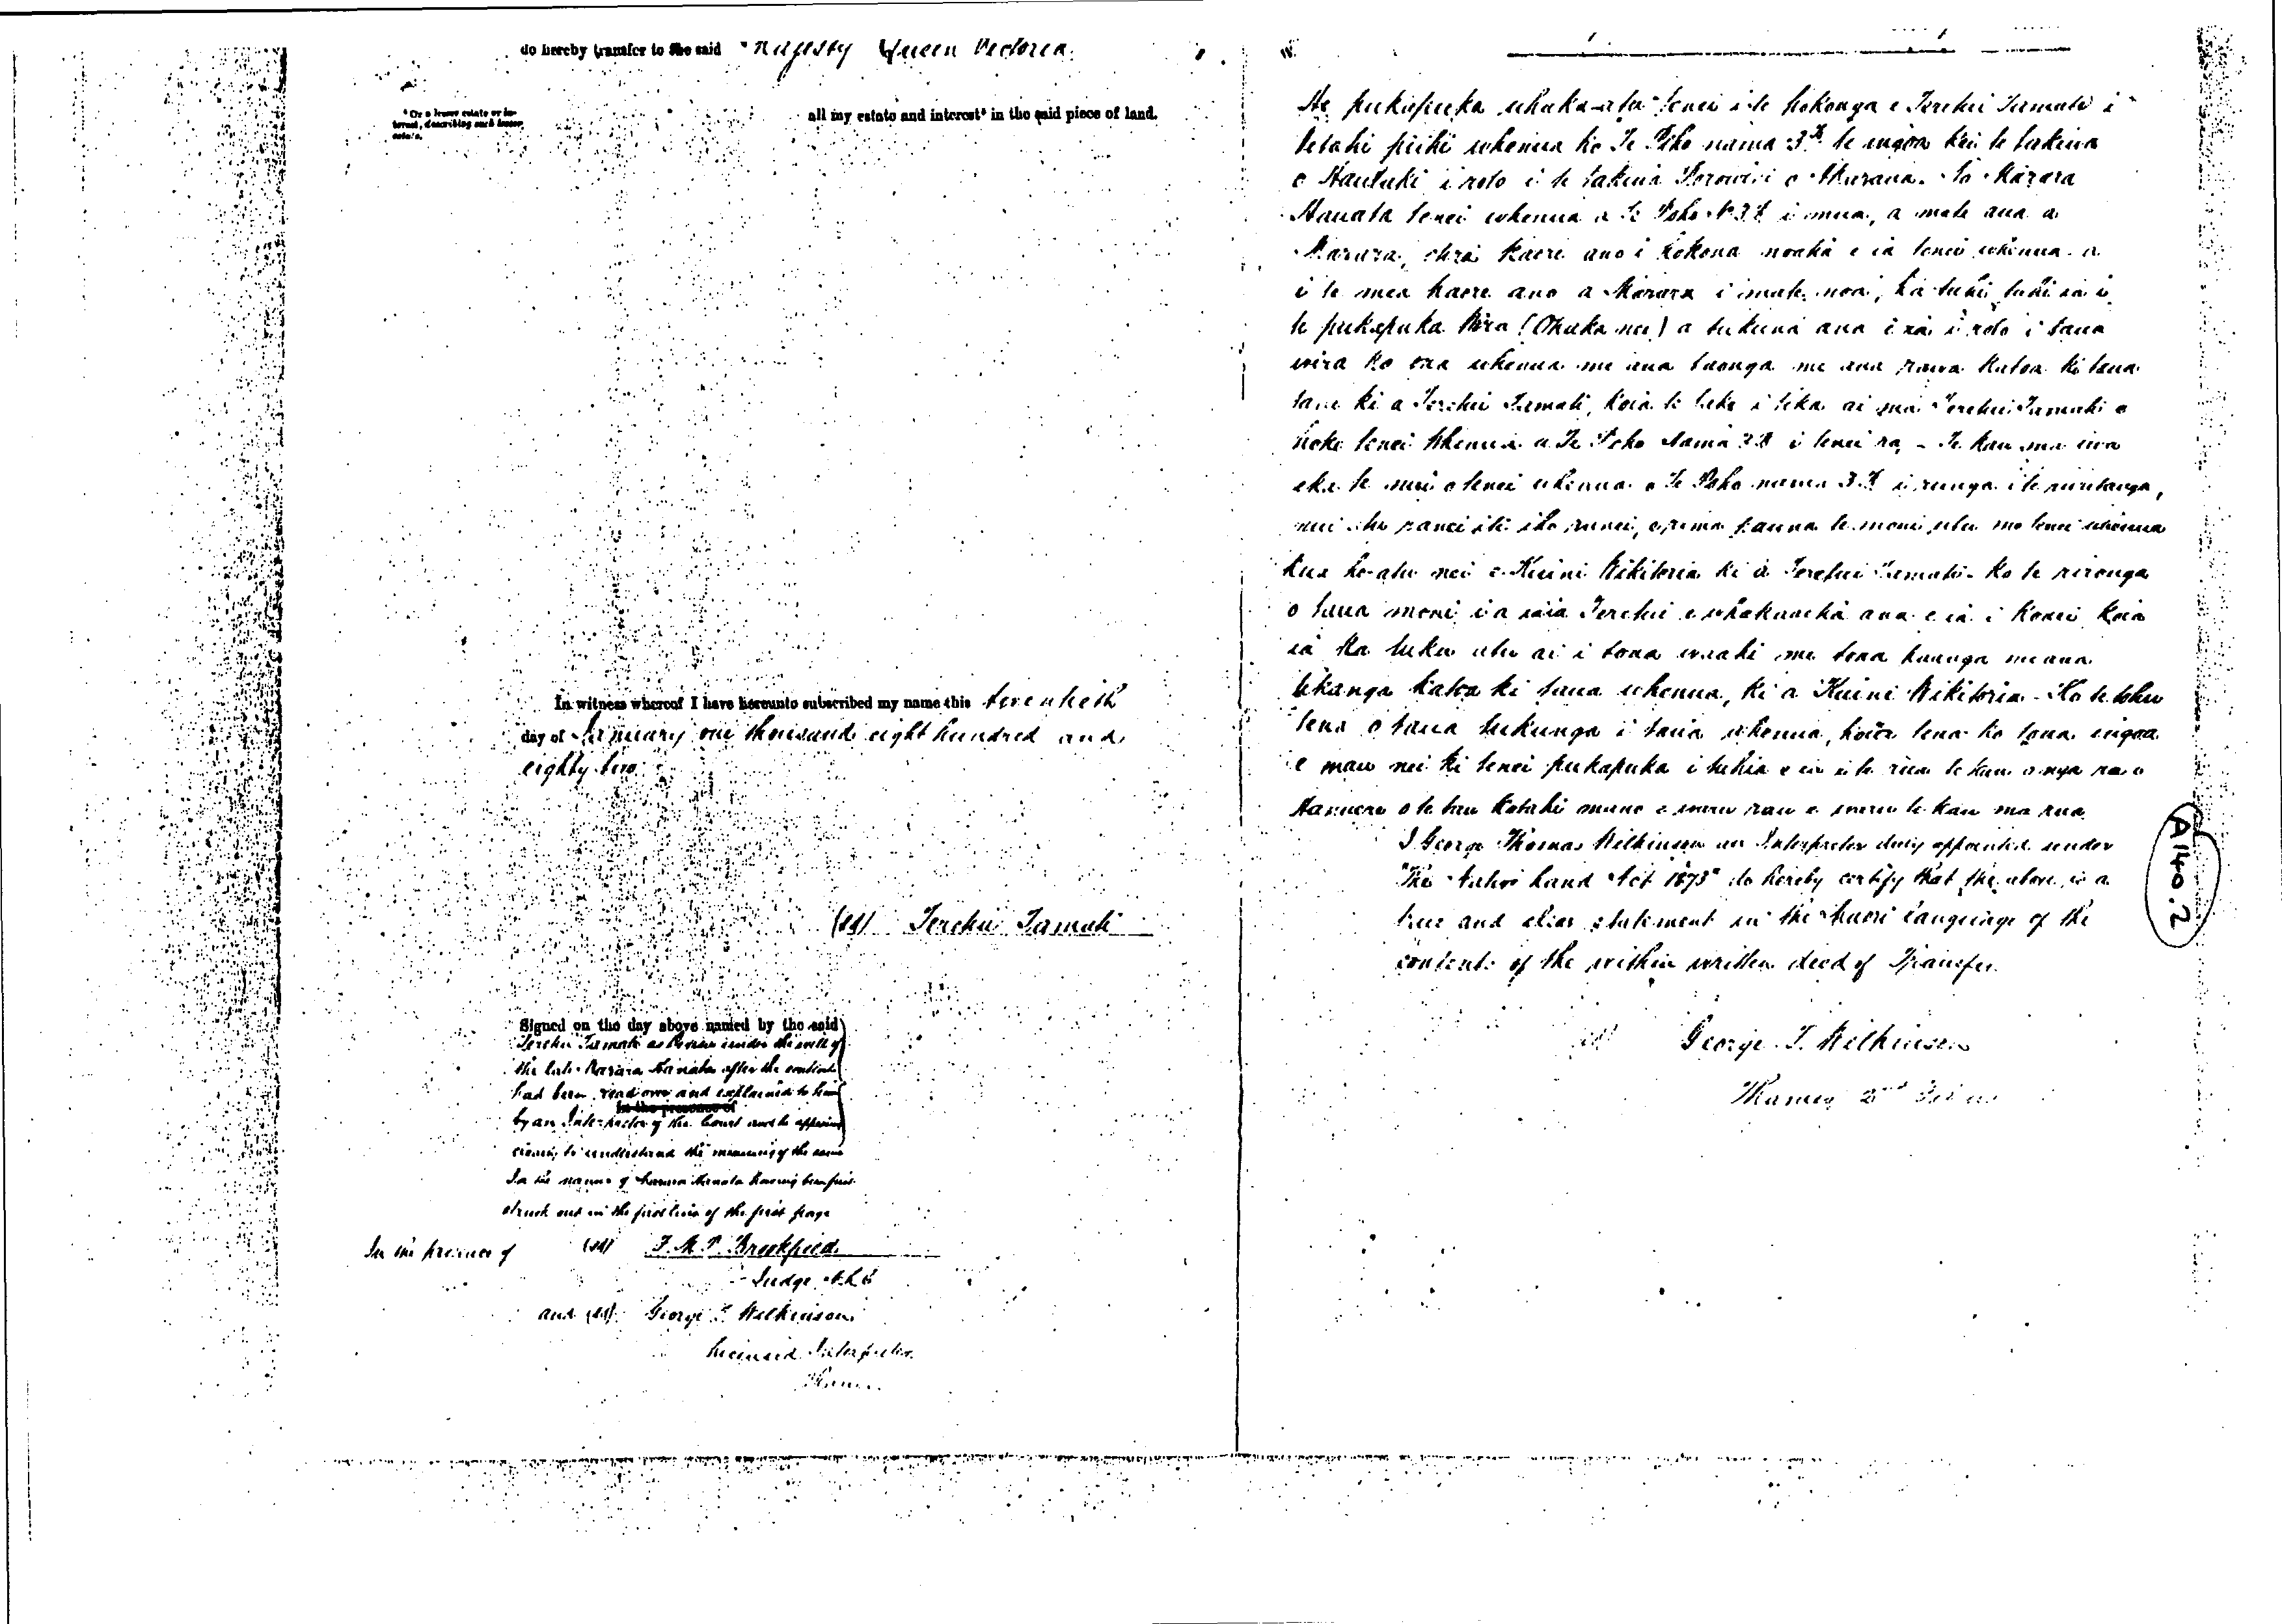 do hereby transfer to the said Majesty Queen Victoria.
all my estate and interest* in the said piece of land.
* Or a lesser estate or in-
terest, describing such lesser
estate.
In witness whereof I have hereunto subscribed my name this twentieth
day of January one thousand eight hundred and
eighty two
(sd) Terehu Tamati
Signed on the day above named by the said
Terehu Tamati as Devisee under the will of
the late Marara Hanata after the contents
had been read over and explained to him
In the presence of
by an Interpreter of the Court and he appearing
clearly to understand the meaning of the same
In the name of Marara Hanata having been first
struck out in the first line of the first page
In the presence of (sd) Brookfield
Judge N.L.C
and (sd) George T Wilkinson
Licensed Interpreter
Thames
He pukapuka whaka-atu tenei i te hokonga e Terehu Tamati i
tetahi piihi whenua ko Te Poho nama 3 te ingoa kei te takiwa
o Hauraki i roto i te takiwa Porowini o Akarana. Na Marara
Hanata tenei whenua a Te Poho No 3 i mua, a mate ana a
Marara, kaore ano i hokona noatia e ia tenei whenua a
i te mea kaore ano a Marara i mate noa, ka tuhi tuhi ia i
te pukapuka Wira (Ohaki nei) a tukuna ana i roto i taua
wira ko ona whenua me ana taonga me ana rawa katoa ki tana
tane ki a Terehu Tamati, koia te take i tika ai ma Terehu Tamati e
hoko tenei whenua a Te Poho Nama 3 i tenei ra, - Te kau ma iwa
eka te nui o tenei whenua o Te Poho nama 3 i runga i te ruritanga,
nui atu ranei iti iho ranei, e rima pauna te moni utu mo tenei whenua
kua ho-atu nei e Kuini Wikitoria ki a Terehu Tamati - Ko te rironga
o taua moni i a ia Terehu e whakaaetia ana e ia i konei koia
ia ka tuku atu ai i tona wahi me tona paanga me ana
tikanga katoa ki taua whenua, ki a Kuini Wikitoria - Ko te tohu
tena o tana tukunga i taua whenua, koia tena ko tona ingoa
e mau nei ki tenei pukapuka i tuhia e ia i te rua te kau o nga ra o
Hanuere o te tau kotahi mano e waru rau e waru te kau ma rua
I George Thomas Wilkinson an Interpreter duly appointed under
"The Native Land Act 1873" do hereby certify that the above is a
true and clear statement in the Maori language of the
contents of the within written deed of Transfer.
(sd) George T. Wilkinson
Thames 2nd
A140.2